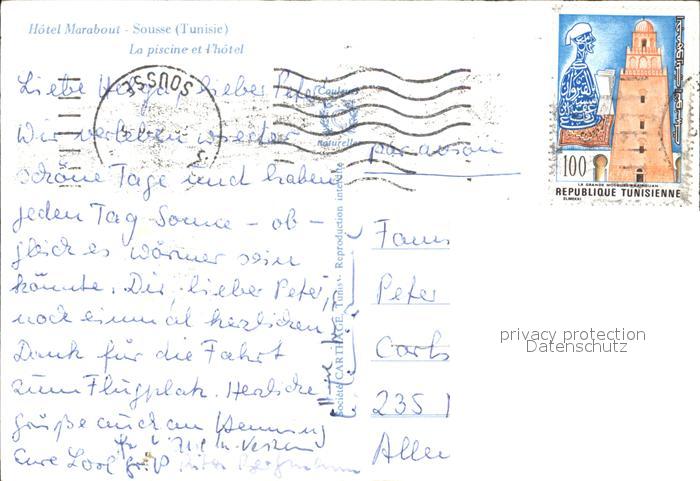 Hôtel Marabout - Sousse (Tunisie)
La piscine et l'hôtel
SOUSSE
Couleurs
Naturelles
100
LA GRANDE MOSQUEE KAIROUAN
REPUBLIQUE TUNISIENNE
ELMEKKI
Liebe lieber Peter
Wir verleben wieder
schöne Tage und haben
jeden Tag Sonne - ob -
gleich es wärmer sein
könnte. Dir, lieber Peter,
noch einmal herzlichen
Dank für die Fahrt
zum Flugplatz. Herzliche
Grüße auch an Henning
Eure
par avion
Société CARTHAGE, Tunis - Reproduction interdite
Peter
2351
privacy protection
Datenschutz